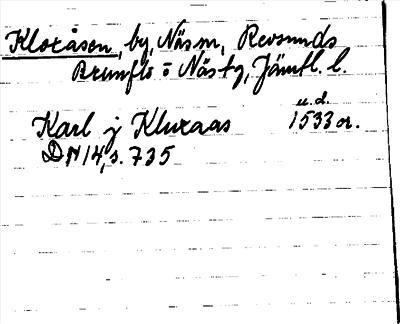 Kloxåsen, by, Näs sn, Revsunds
Brunflo o Näs tg, Jämtl. l.
u.d.
Karl j Kluxaas 1533 or.
DN 14, s. 735